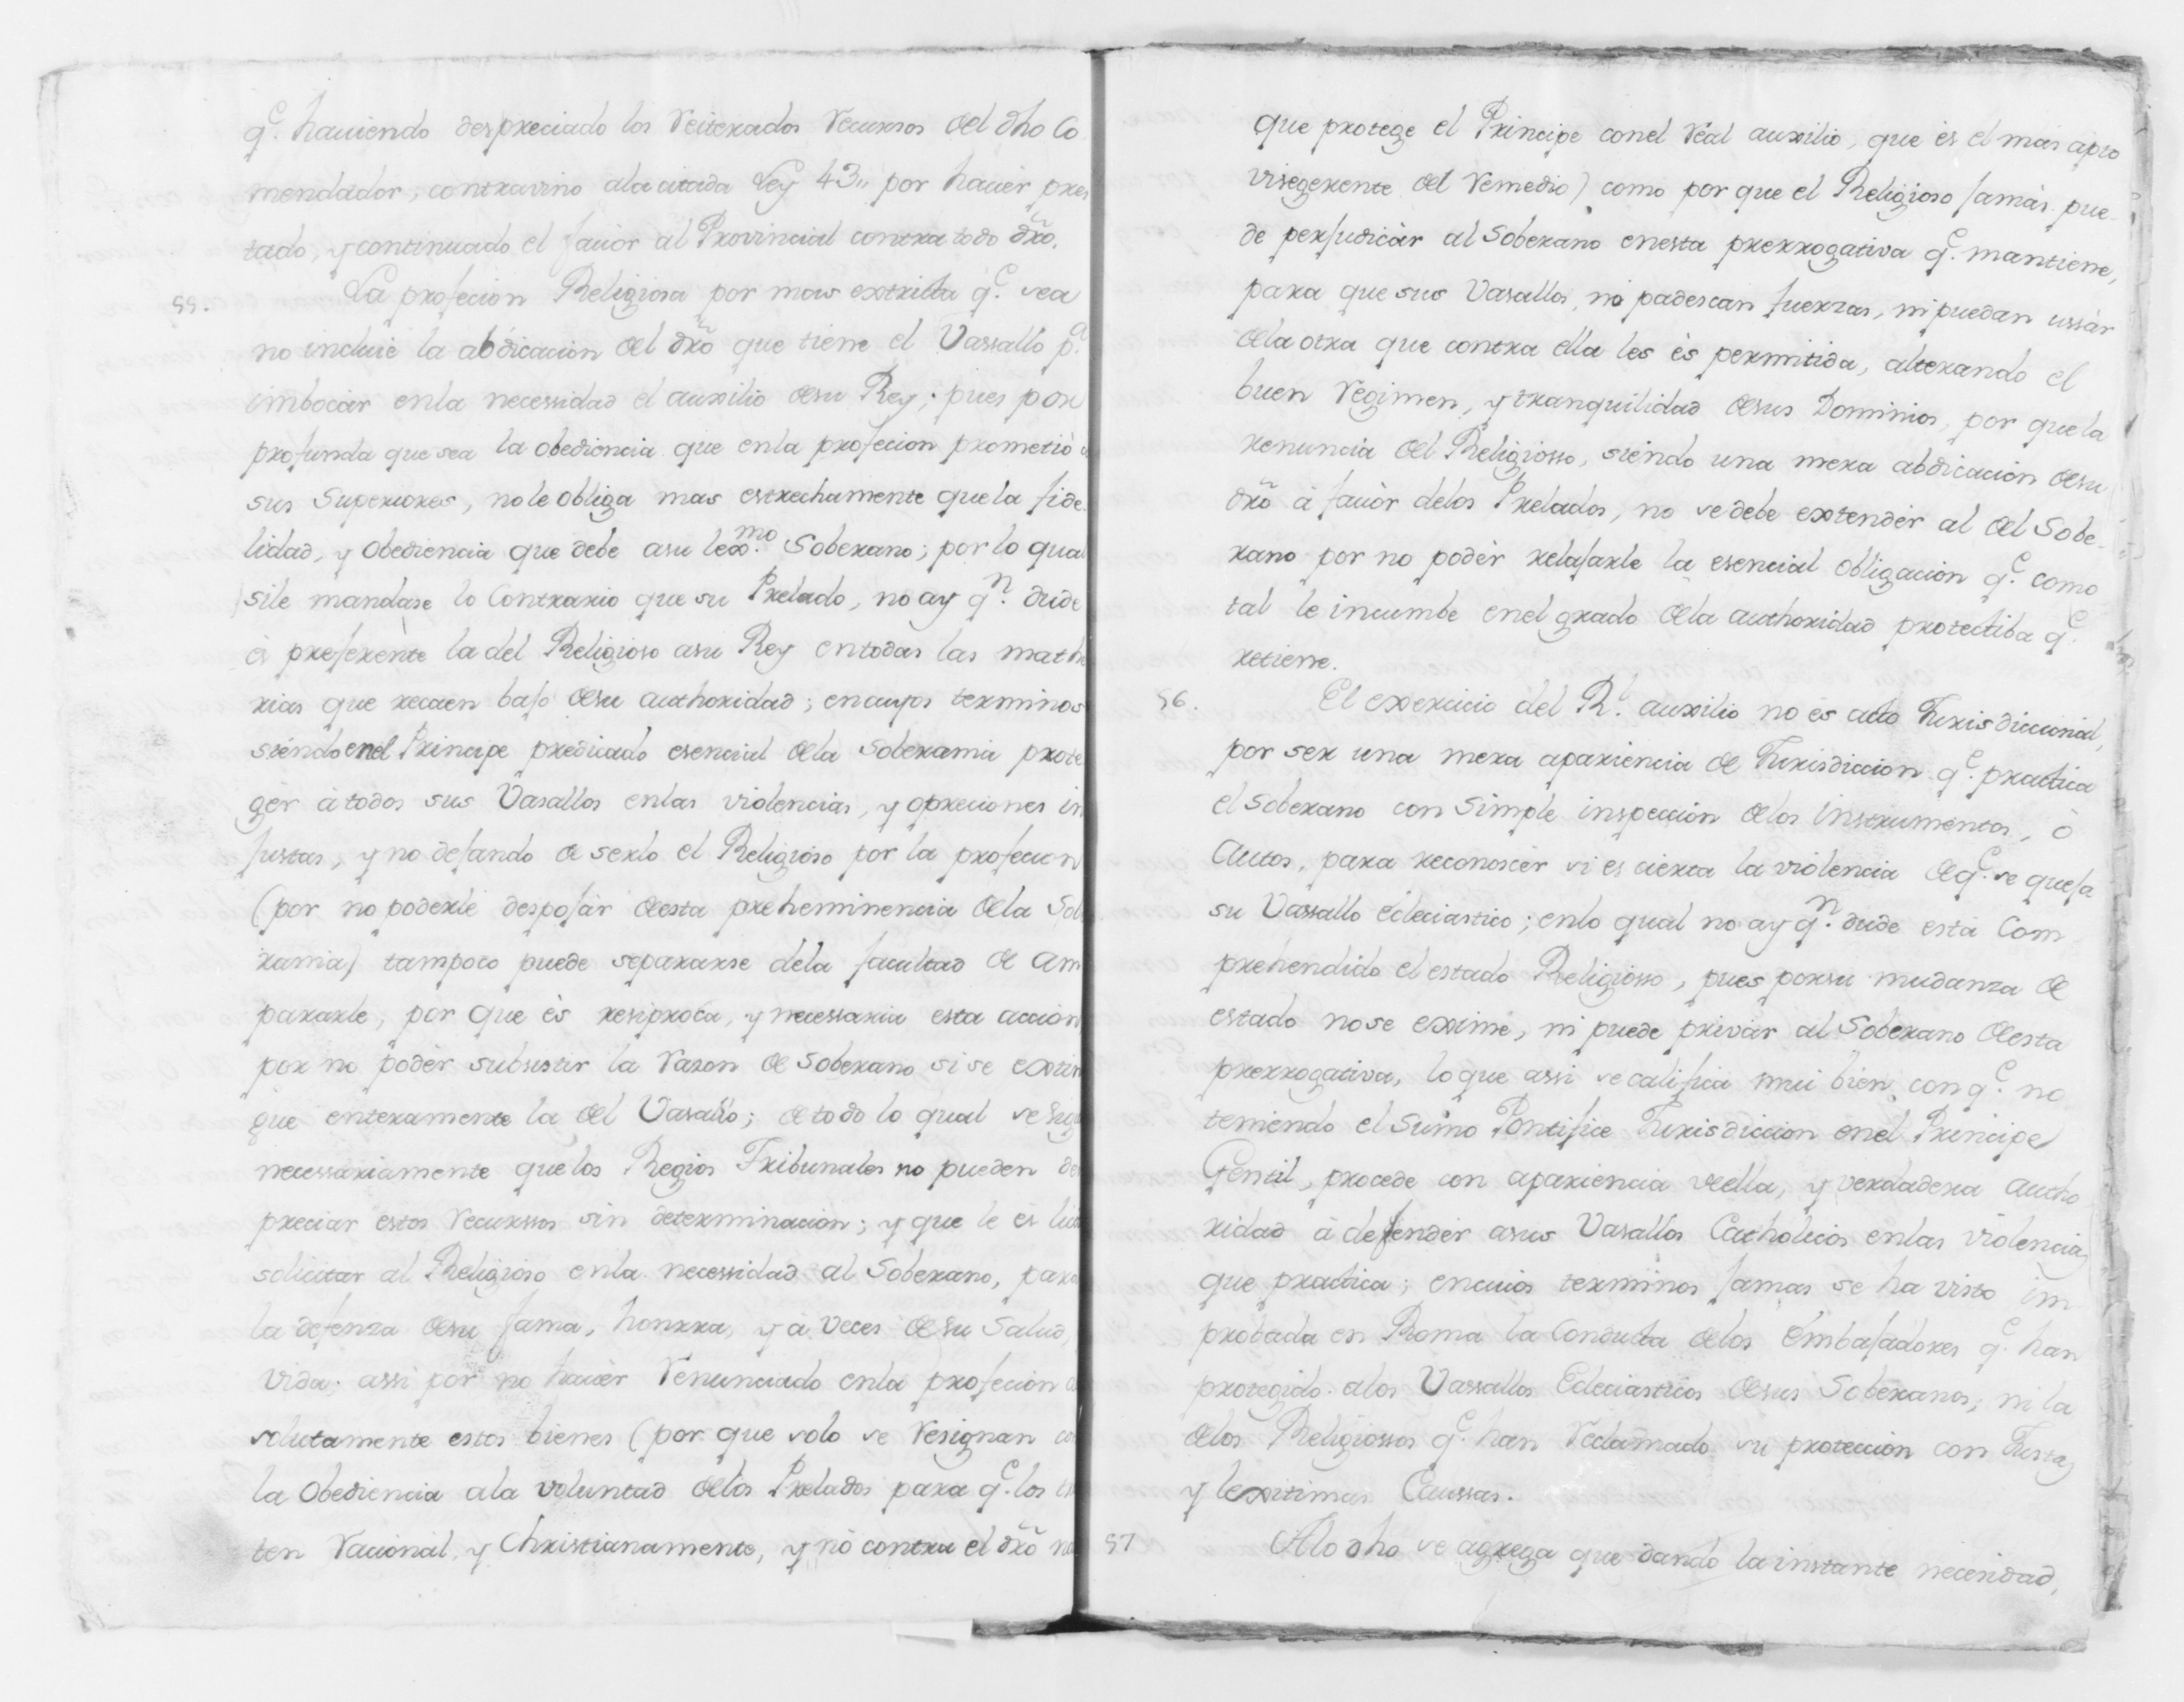 q.e haviendo despreciado los reiterados recursos del dho Co
mendador, contravino ala citada Ley 43,, por haver pres
tado, y continuado el favor al Provincial contra todo dr̃o.
55. La profecion Religiosa por mas extricta q.e sea
no incluie la abdicacion del dr̃o que tiene el Vassallo p.a
imbocàr enla necessidad el auxilio desu Rey; pues por
profunda que sea la obediencia que enla profecion prometiò a
sus Superiores, nole obliga mas estrechamente que la fide
lidad, y obediencia que debe asu lex.mo Soberano; por lo qual
sile mandase lo Contrario que su Prelado, no ay q.n dude
es preferente la del Religioso asu Rey entodas las mathe
rias que recaen bajo desu authoridad; encuyos terminos
siendo enel Principe predicado esencial dela Soberania prote
gèr à todos sus Vasallos enlas violencias, y opreciones in
justas, y no dejando de serlo el Religioso por la profecion
(por no poderle despojàr deesta preheminencia dela Sobe
rania) tampoco puede separarse dela facultad de am
pararle, por que ès resiproca, y necessaria esta accion
por no podèr subsistir la razon de Soberano si se extin
gue enteramente la del Vasallo; detodo lo qual se sigue
necessariamente quelos Regios Tribunales no pueden des
preciar estos recurssos sin determinacion; y que le es licito
solicitar al Religioso enla necessidad al Soberano, para
la defenza desu fama, honrra, y a veces desu Salud,
vida. assi por no haver renunciado enla profecion ab
solutamente estos bienes (por que solo se resignan con
la Obediencia ala voluntad delos Prelados para q.e los tra
ten racional, y Christianamente, y nò contra el dr̃o na
que protege el Principe conel real auxilio, que ès el mas apro
visegerente del remedio) como por que el Religioso jamàs pue
de perjudicàr al Soberano enesta prerrogativa q.e mantiene,
para que sus Vasallos, no padescan fuerzas, ni puedan ussàr
dela otra que contra ella les ès permitida, alterando el
buen regimen, y tranquilidad desus Dominios, por que la
renuncia del Religiosso, siendo una mera abdicacion desu
dr̃o à favòr delos Prelados, no se debe extendèr al del Sobe
rano por no podèr relajarle la esencial obligacion q.e como
tal le incumbe enel grado dela authoridad protectiba q.e
retiene.
56. El exercicio del R.l auxilio no ès acto Jurisdiccional,
por ser una mera apariencia de Jurisdiccion q.e practica
el Soberano con Simple inspeccion delos instrumentos, ò
Autos, para reconoscèr si es cierta la violencia deq.e se queja
su Vassallo ecleciastico; enlo qual no ay q.n dude està Com
prehendido el estado Religiosso, pues porsu mudanza de
estado nose exsime, ni puede privàr al Soberano deesta
prerrogativa, lo que assi se califica mui bien, con q.e no
teniendo el Sumo Pontifice Jurisdiccion enel Principe
Gentil, procede con apariencia deella, y verdadera autho
ridad à defendèr asus Vasallos Catholicos enlas violencias
que practica; encuios terminos jamas se ha visto im
probada en Roma la Conducta delos Embajadores q.e han
protegido alos Vassallos Ecleciasticos desus Soberanos; ni la
delos Religiossos q.e han reclamado su proteccion con Justas
y lexitimas Caussas.
57 Alo dho se agrega que dando la instante necesidad,